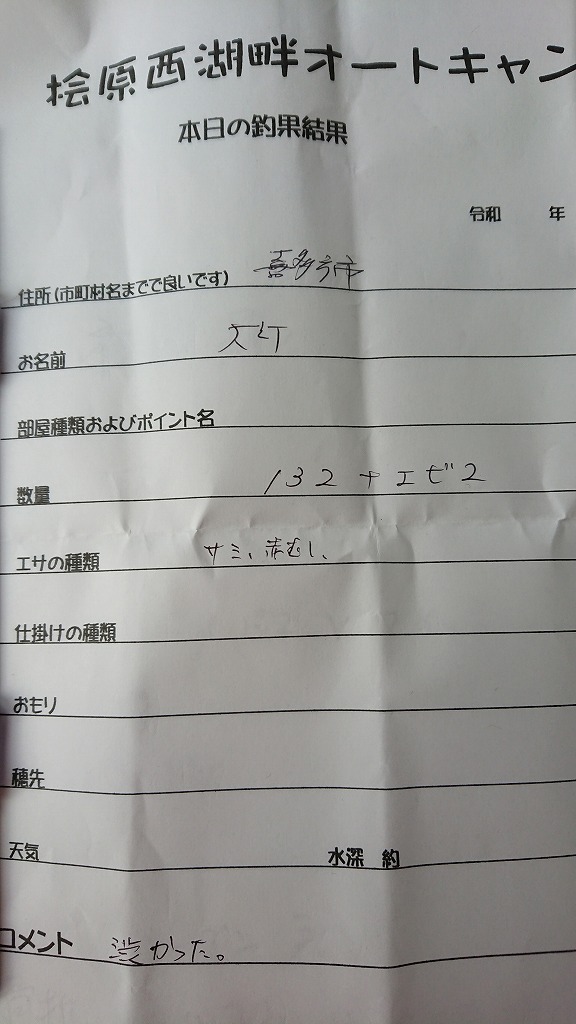 桧原西湖畔オートキャン
本日の釣果結果
令和 年
住所(市町村名までで良いです) 喜多方市
お名前
部屋種類およびポイント名
数量 132+エビ2
エサの種類 サミ、赤むし、
仕掛けの種類
おもり
穂先
天気 水深 約
コメント 渋かった。